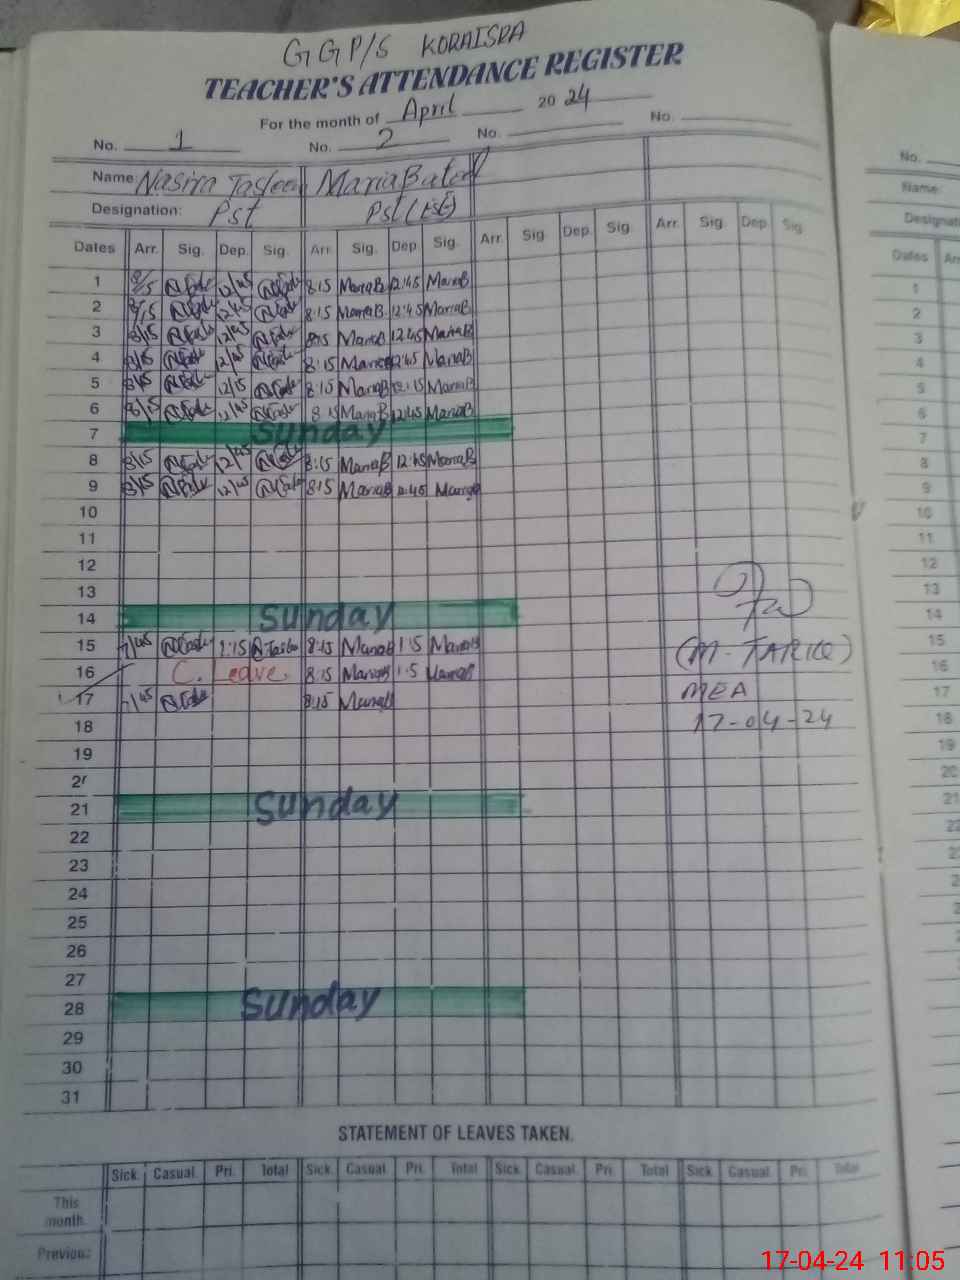 GGP/S KORAISRA
TEACHER'S ATTENDANCE REGISTER
For the month of April 2024
No. 1 No. 2 No. No.
Name: Nasira Tasleem Maria Batool
Designation: Pst Pst (ESE)
Dates Arr. Sig. Dep. Sig. Arr. Sig. Dep. Sig. Arr. Sig. Dep. Sig. Arr. Sig. Dep. Sig.
1 12/45 8:15 MariaB 12:45 MariaB
2 8/15 12:45 8:15 MariaB 12:45 MariaB
3 8/15 12/45 8:15 MariaB 12:45 MariaB
4 8/15 12/45 8:15 MariaB 12:45 MariaB
5 8/15 12/15 8:15 MariaB 12:15 MariaB
6 8/15 12/45 8:15 MariaB 12:45 MariaB
7 Sunday
8 8/15 12/45 8:15 MariaB 12:45 MariaB
9 8/15 12/45 8:15 MariaB 12:45 MariaB
10
11
12
13
14 Sunday
15 7/45 1:15 8:15 MariaB 1:5 MariaB
(M. TARIQ)
16 C. Leave 8:15 MariaB 1:5 MariaB
17 7/45 8:15 MariaB
MEA
18
17-04-24
19
20
21 Sunday
22
23
24
25
26
27
28 Sunday
29
30
31
STATEMENT OF LEAVES TAKEN.
Sick. Casual. Pri. Total Sick. Casual. Pri. Total Sick. Casual. Pri. Total Sick. Casual. Pri. Total
This month.
Previous:
No.
Name:
Dates
1
2
3
4
5
6
7
8
9
10
11
12
13
14
15
16
17
18
19
20
21
22
17-04-24 11:05